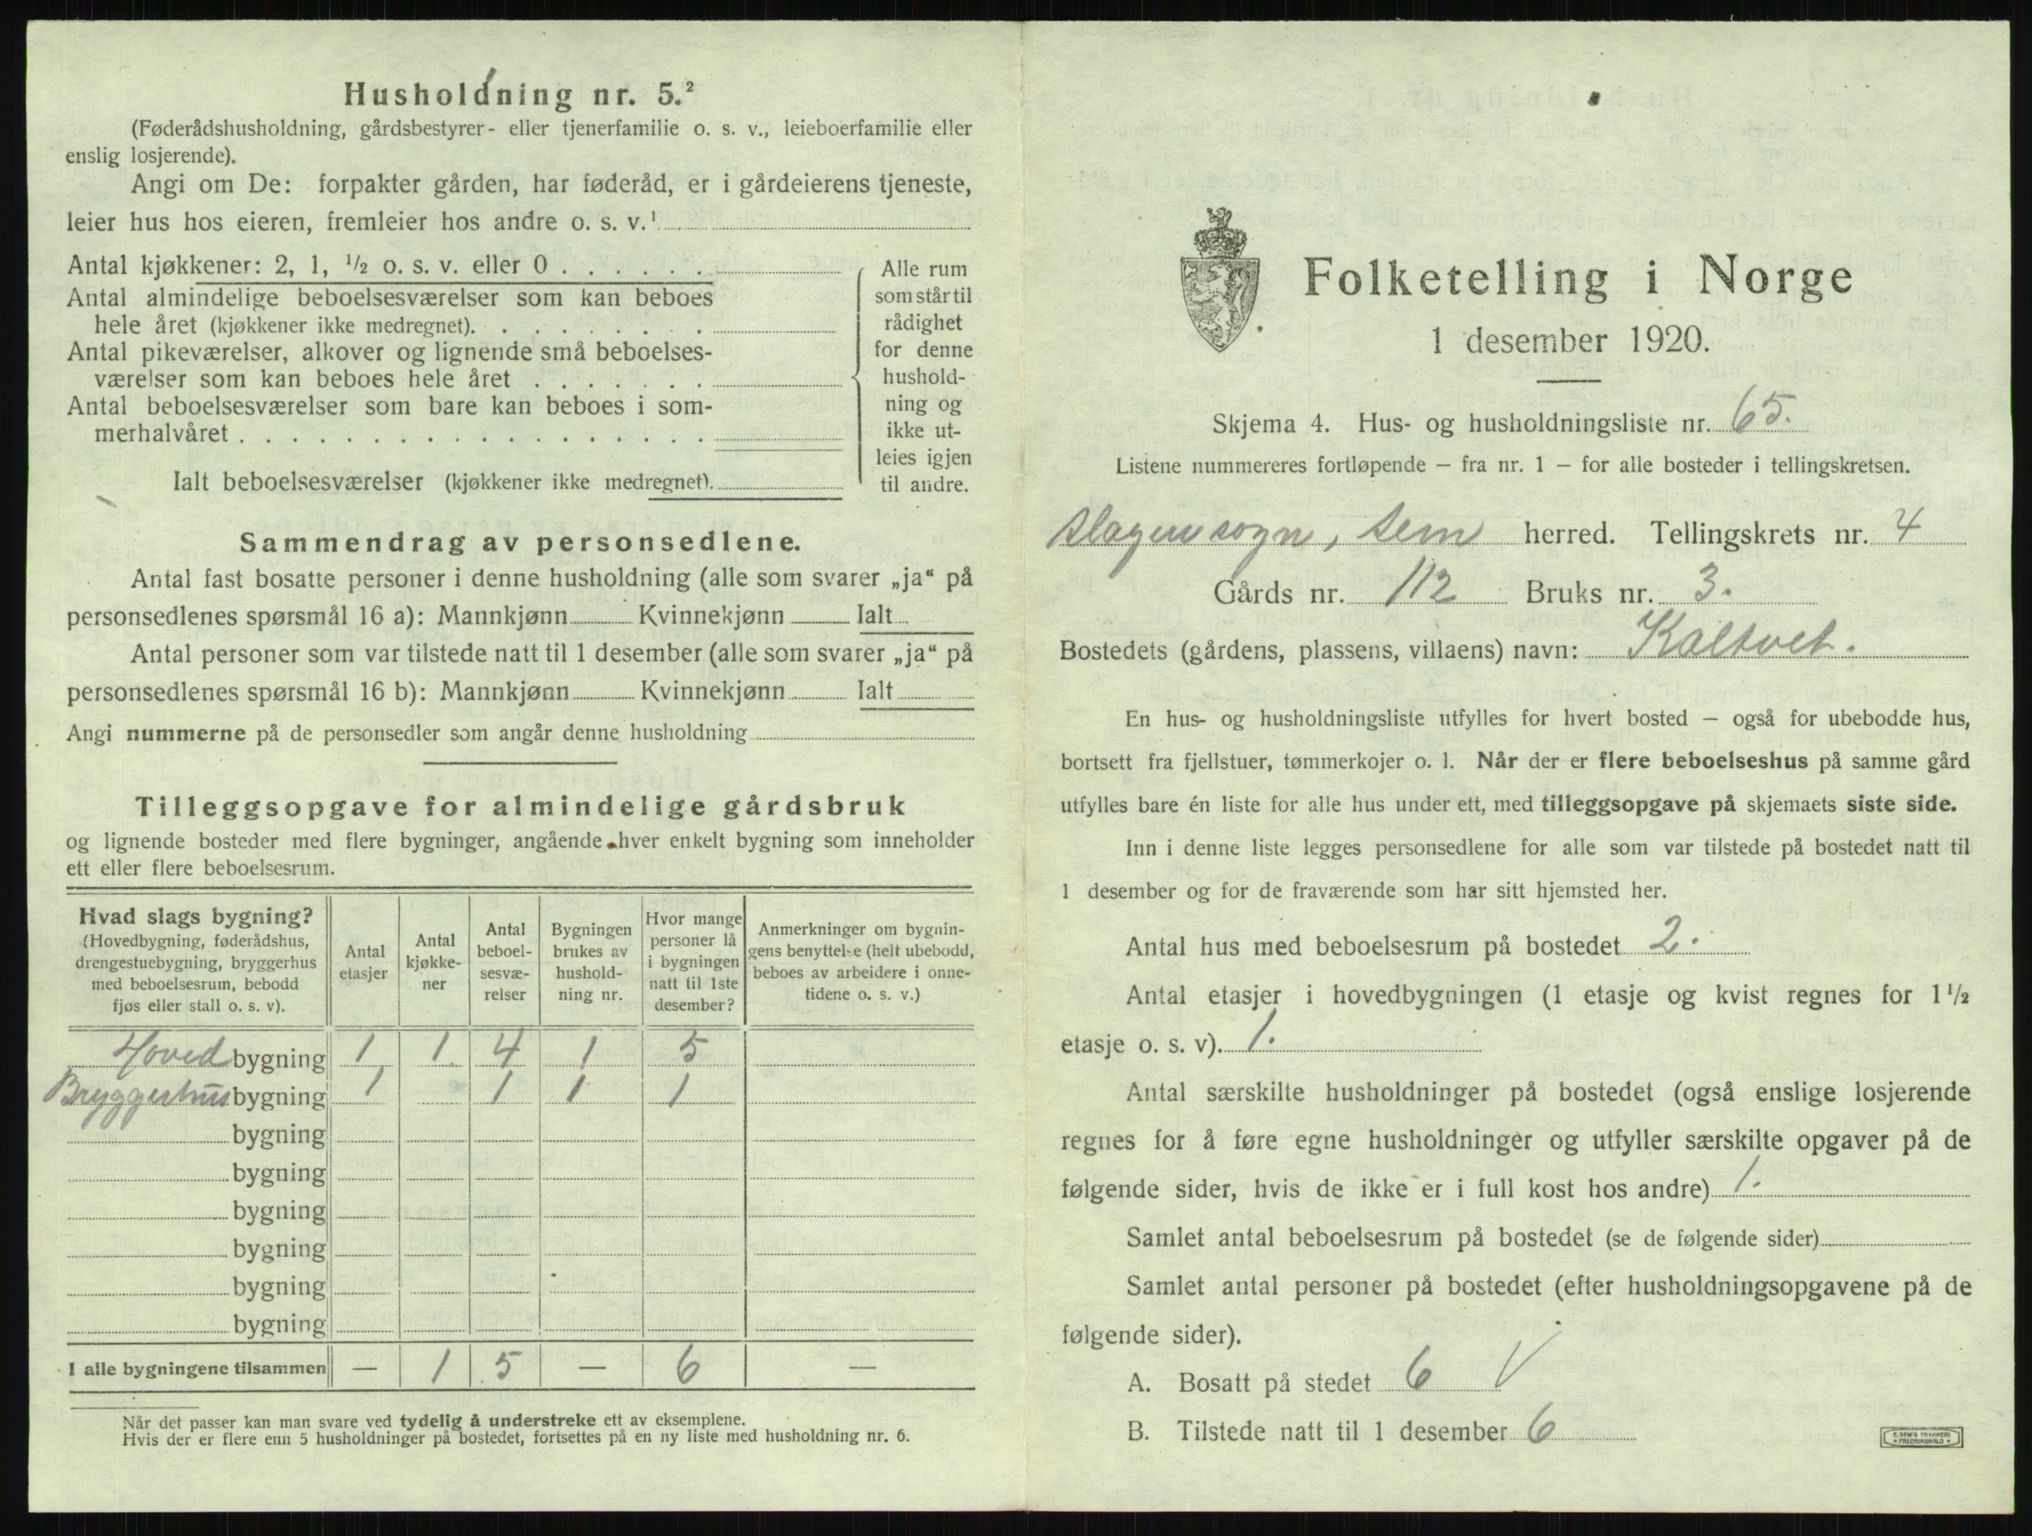 Husholdning nr. 5.²
(Føderådshusholdning, gårdsbestyrer- eller tjenerfamilie o. s. v., leieboerfamilie eller
enslig losjerende).
Angi om De: forpakter gården, har føderåd, er i gårdeierens tjeneste,
leier hus hos eieren, fremleier hos andre o. s. v.¹
Antal kjøkkener: 2, 1, ½ o. s. v. eller 0
Antal almindelige beboelsesværelser som kan beboes
hele året (kjøkkener ikke medregnet).
Antal pikeværelser, alkover og lignende små beboelses-
værelser som kan beboes hele året
Antal beboelsesværelser som bare kan beboes i som-
merhalvåret
Ialt beboelsesværelser (kjøkkener ikke medregnet).
Alle rum
som står til
rådighet
for denne
hushold-
ning og
ikke ut-
leies igjen
til andre.
Sammendrag av personsedlene.
Antal fast bosatte personer i denne husholdning (alle som svarer „ja“ på
personsedlenes spørsmål 16 a): Mannkjønn Kvinnekjønn Ialt
Antal personer som var tilstede natt til 1 desember (alle som svarer „ja“ på
personsedlenes spørsmål 16 b): Mannkjønn Kvinnekjønn Ialt
Angi nummerne på de personsedler som angår denne husholdning
Tilleggsopgave for almindelige gårdsbruk
og lignende bosteder med flere bygninger, angående hver enkelt bygning som inneholder
ett eller flere beboelsesrum.
Hvad slags bygning?
(Hovedbygning, føderådshus,
drengestuebygning, bryggerhus
med beboelsesrum, bebodd
fjøs eller stall o. s. v).
Antal
etasjer
Antal
kjøkke-
ner
Antal
beboel-
sesvæ-
relser
Bygningen
brukes av
hushold-
ning nr.
Hvor mange
personer lå
i bygningen
natt til 1ste
desember?
Anmerkninger om bygnin-
gens benyttelse (helt ubebodd,
beboes av arbeidere i onne-
tidene o. s. v.)
Hoved bygning 1 1 4 1 5
Bryggerhus bygning 1 1 1 1
bygning
bygning
bygning
bygning
bygning
bygning
I alle bygningene tilsammen — 1 5 — 6 —
Når det passer kan man svare ved tydelig å understreke ett av eksemplene.
Hvis der er flere enn 5 husholdninger på bostedet, fortsettes på en ny liste med husholdning nr. 6.
Folketelling i Norge
1 desember 1920.
Skjema 4. Hus- og husholdningsliste nr. 65.
Listene nummereres fortløpende — fra nr. 1 — for alle bosteder i tellingskretsen.
Slagen sogn, Sem herred. Tellingskrets nr. 4
Gårds nr. 112 Bruks nr. 3.
Bostedets (gårdens, plassens, villaens) navn: Kaltvet.
En hus- og husholdningsliste utfylles for hvert bosted — også for ubebodde hus,
bortsett fra fjellstuer, tømmerkojer o. l. Når der er flere beboelseshus på samme gård
utfylles bare én liste for alle hus under ett, med tilleggsopgave på skjemaets siste side.
Inn i denne liste legges personsedlene for alle som var tilstede på bostedet natt til
1 desember og for de fraværende som har sitt hjemsted her.
Antal hus med beboelsesrum på bostedet 2.
Antal etasjer i hovedbygningen (1 etasje og kvist regnes for 1 ½
etasje o. s. v). 1.
Antal særskilte husholdninger på bostedet (også enslige losjerende
regnes for å føre egne husholdninger og utfyller særskilte opgaver på de
følgende sider, hvis de ikke er i full kost hos andre) 1.
Samlet antal beboelsesrum på bostedet (se de følgende sider)
Samlet antal personer på bostedet (efter husholdningsopgavene på de
følgende sider).
A. Bosatt på stedet 6 V
B. Tilstede natt til 1 desember 6
E. SEM'S TRYKKERI
FREDRIKSHALD